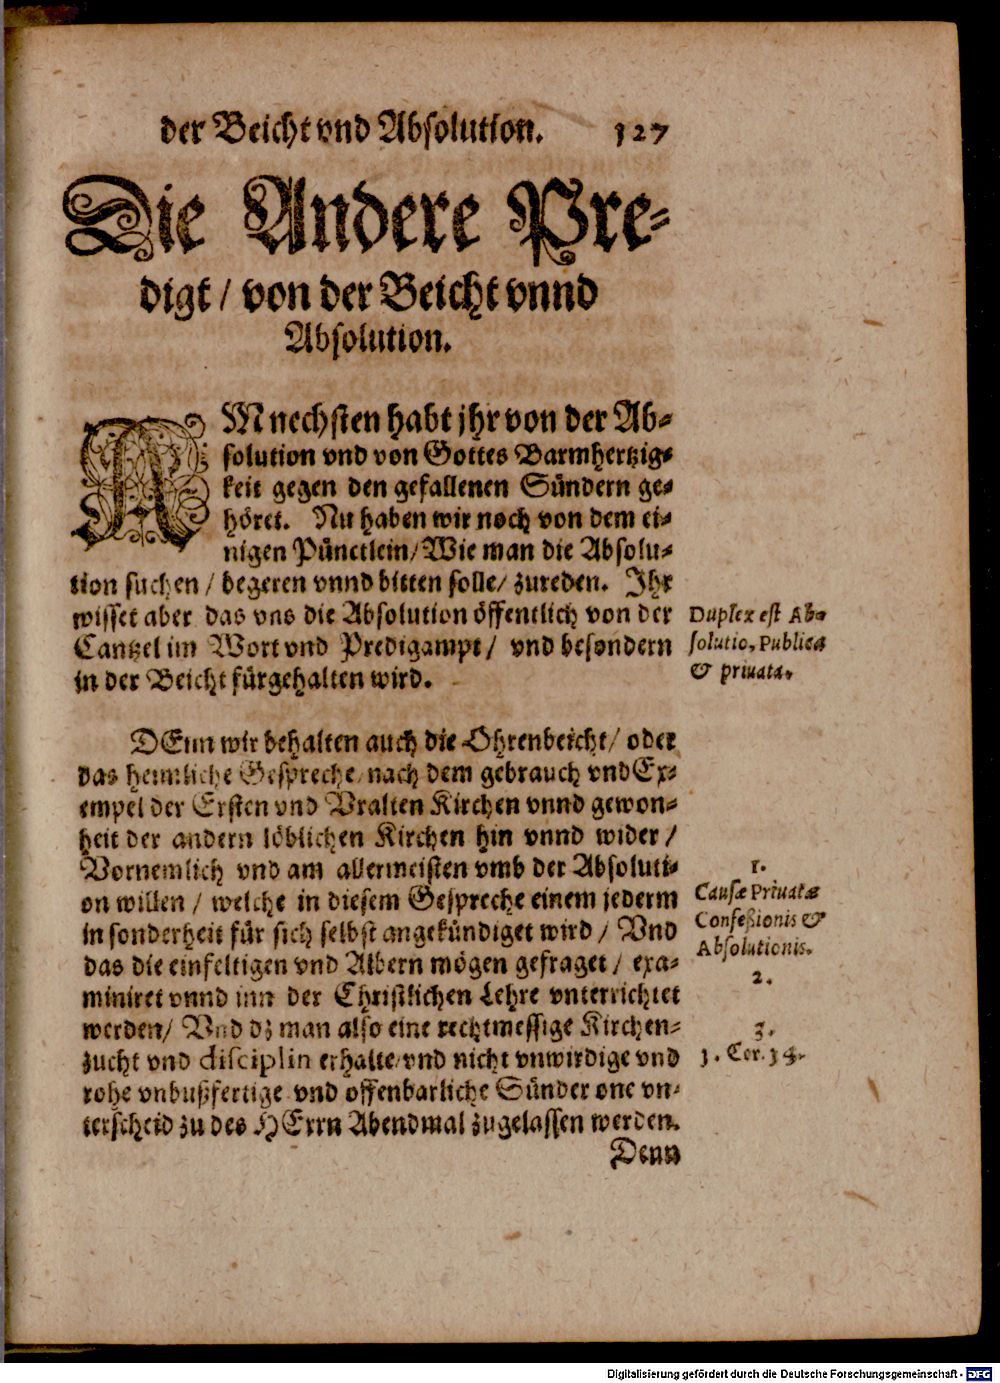 der Beicht vnd Absolution. 127
Die Andere Pre-
digt / von der Beicht vnnd
Absolution.
AM nechsten habt jhr von der Ab-
solution vnd von Gottes Barmhertzig-
keit gegen den gefallenen Sündern ge-
höret. Nu haben wir noch von dem ei-
nigen Pünctlein / Wie man die Absolu-
tion suchen / begeren vnnd bitten solle / zureden. Ihr
wisset aber das vns die Absolution öffentlich von der
Cantzel im Wort vnd Predigampt / vnd besondern
in der Beicht fürgehalten wird.
Duplex est Ab-
solutio, Publica
& priuata.
DEnn wir behalten auch die Ohrenbeicht / oder
das heimliche Gespreche / nach dem gebrauch vnd Ex-
empel der Ersten vnd Vralten Kirchen vnnd gewon-
heit der andern löblichen Kirchen hin vnnd wider /
Vornemlich vnd am allermeisten vmb der Absoluti-
on willen / welche in diesem Gespreche einem jederm
in sonderheit für sich selbst angekündiget wird / Vnd
das die einfeltigen vnd Albern mögen gefraget / exa-
miniret vnnd inn der Christlichen Lehre vnterrichtet
werden / Vnd dz man also eine rechtmessige Kirchen-
zucht vnd disciplin erhalte / vnd nicht vnwirdige vnd
rohe vnbußfertige vnd offenbarliche Sünder one vn-
terscheid zu des HErrn Abendmal zugelassen werden.
1.
Causæ Priuatæ
Confeßionis &
Absolutionis.
2.
3.
1. Cor. 14.
Denn
Digitalisierung gefördert durch die Deutsche Forschungsgemeinschaft - DFG